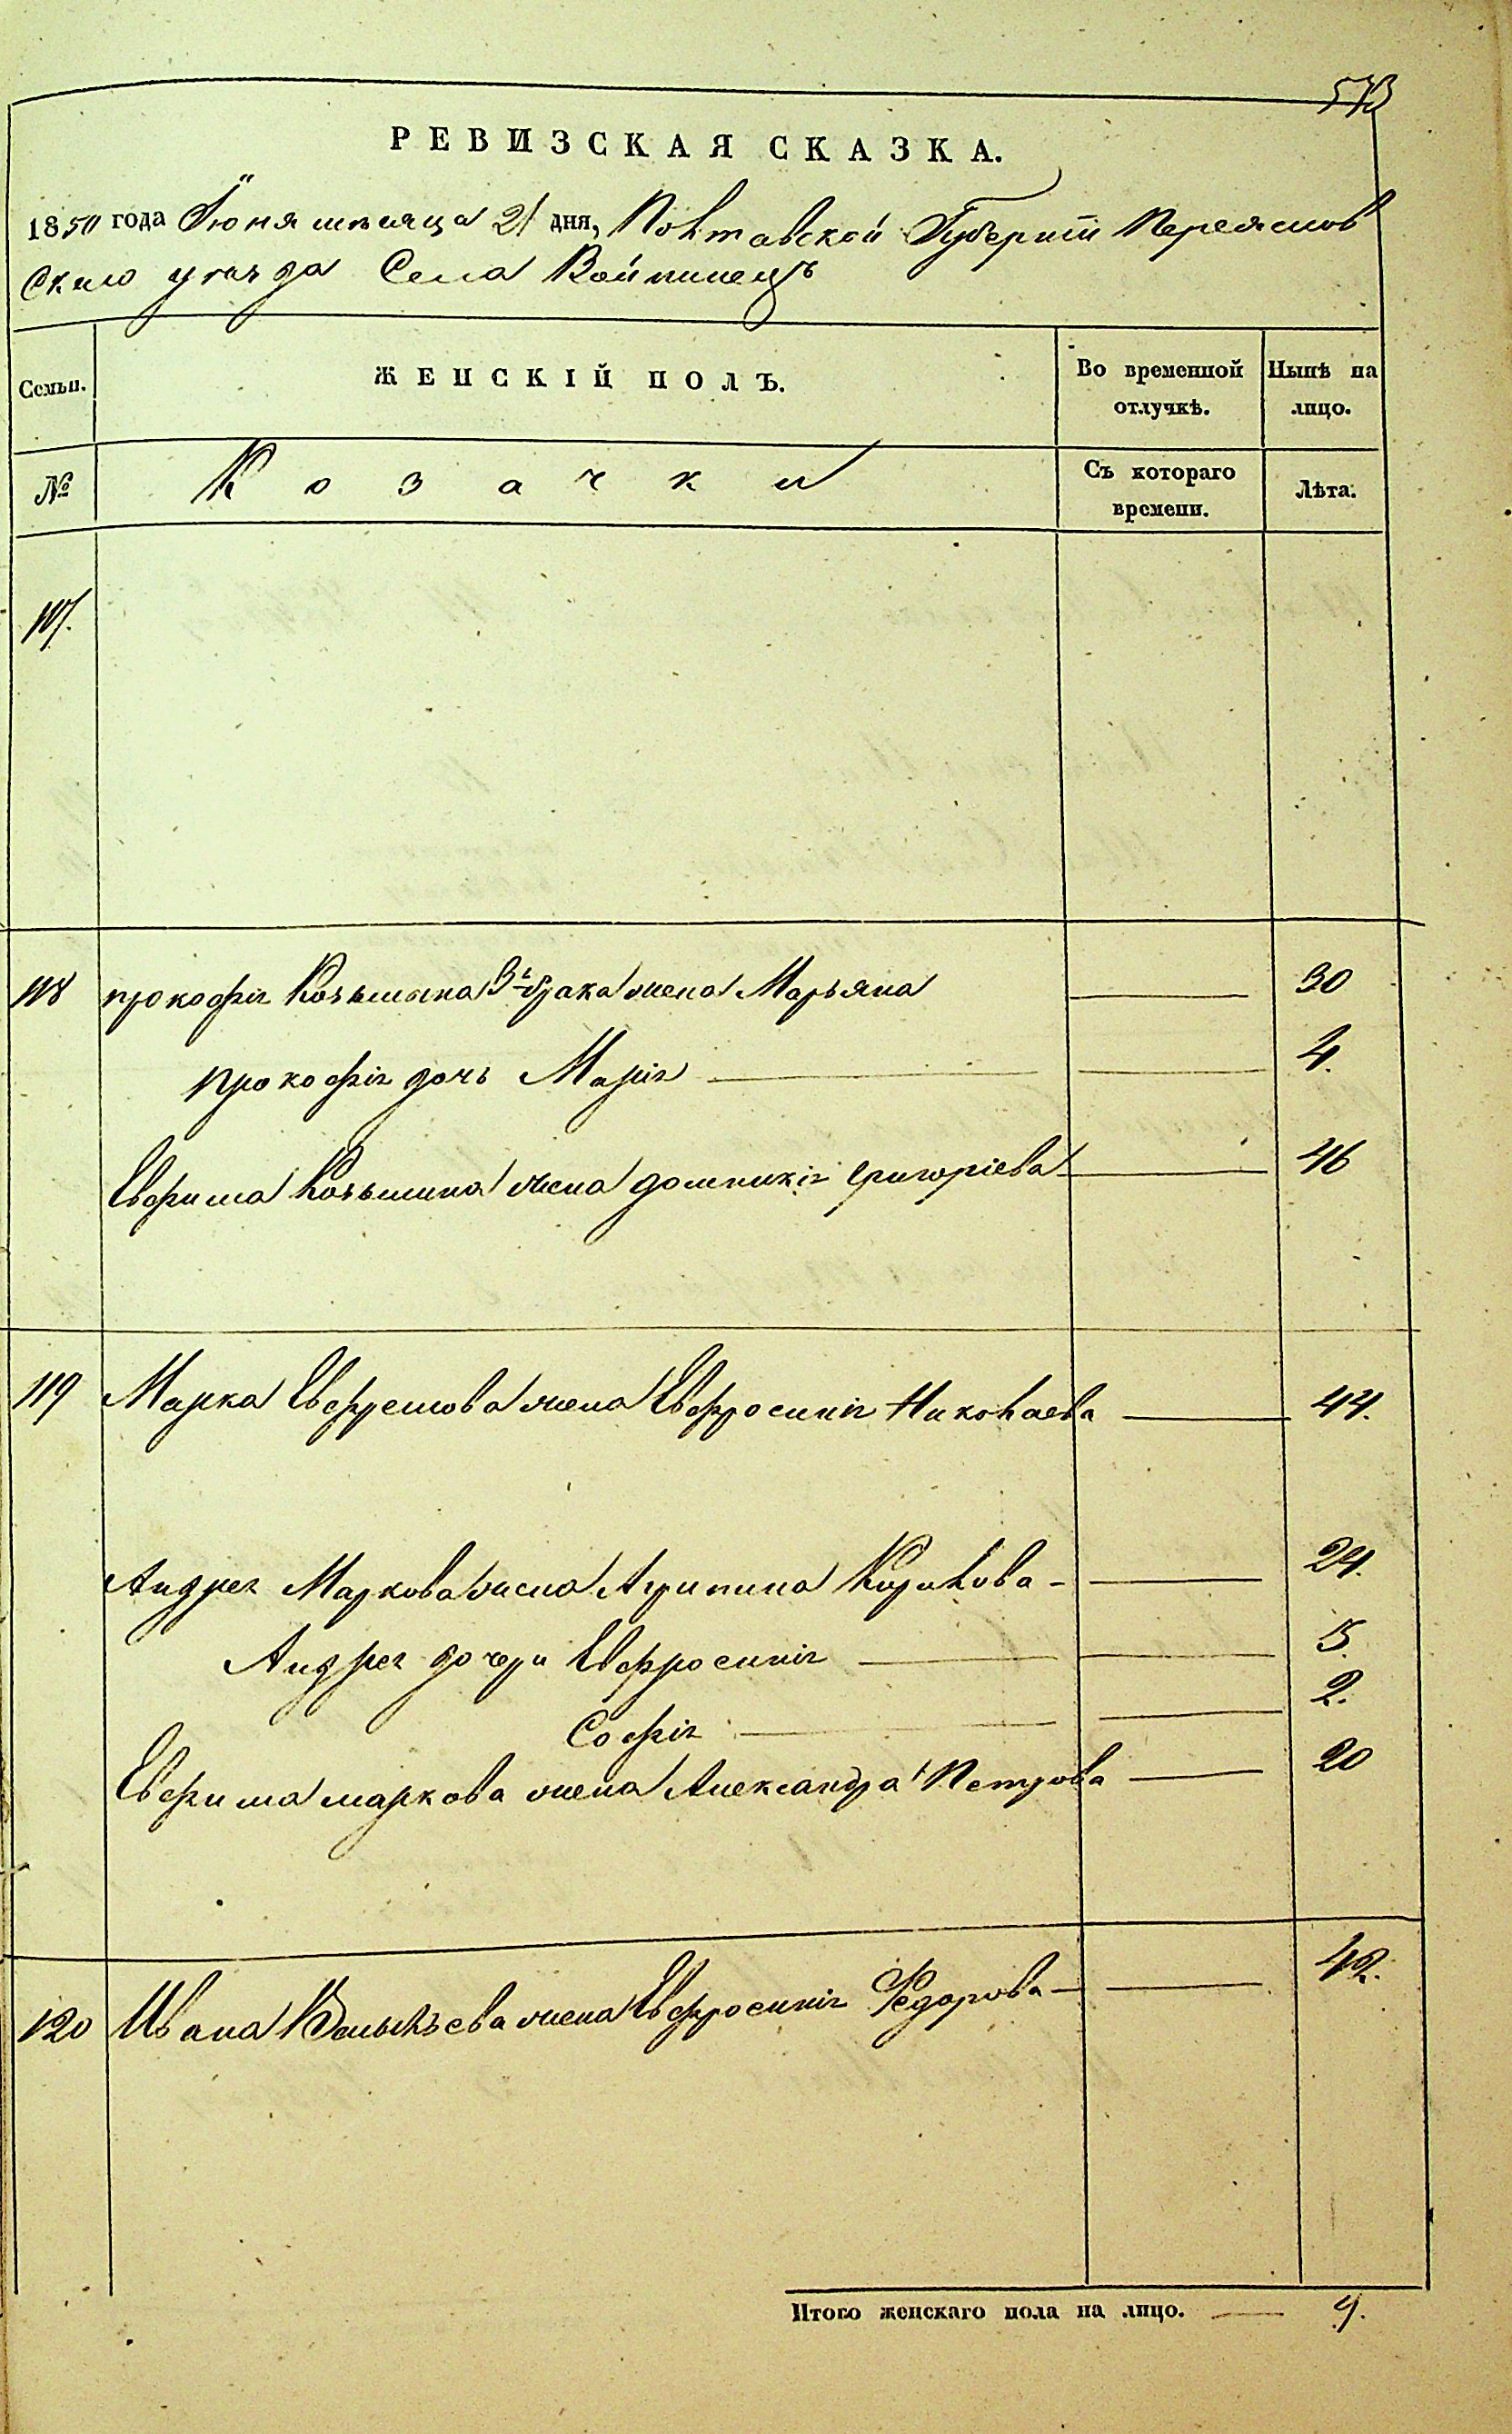 573
РЕВИЗСКАЯ СКАЗКА.
1850 года Іюня мѣсяца 21 дня, Полтавской Губерніи Переяслов
скаго уѣзда Села Войтинецъ
Семьи. ЖЕНСКІЙ ПОЛЪ. Во временной отлучкѣ. Нынѣ на лицо.
№ Козачки Съ котораго времени. Лѣта.
117.
118 прокофія Козьмина 3го брака жена Марьяна — 30
прокофія дочь Марія — 4.
Евфима Козьмина жена домникія григоріева — 46
119 Марка Евфремова жена Евфросинія Николаева — 44.
Андрея Маркова жена Агрипина Корнѣова — 24.
Андрея дочери Евфросинія — 5.
Софія — 2.
Евфима маркова жена Александра Петрова — 20
120 Ивана жена Евфросинія Федорова — 42.
Итого женскаго пола на лицо. — 9.